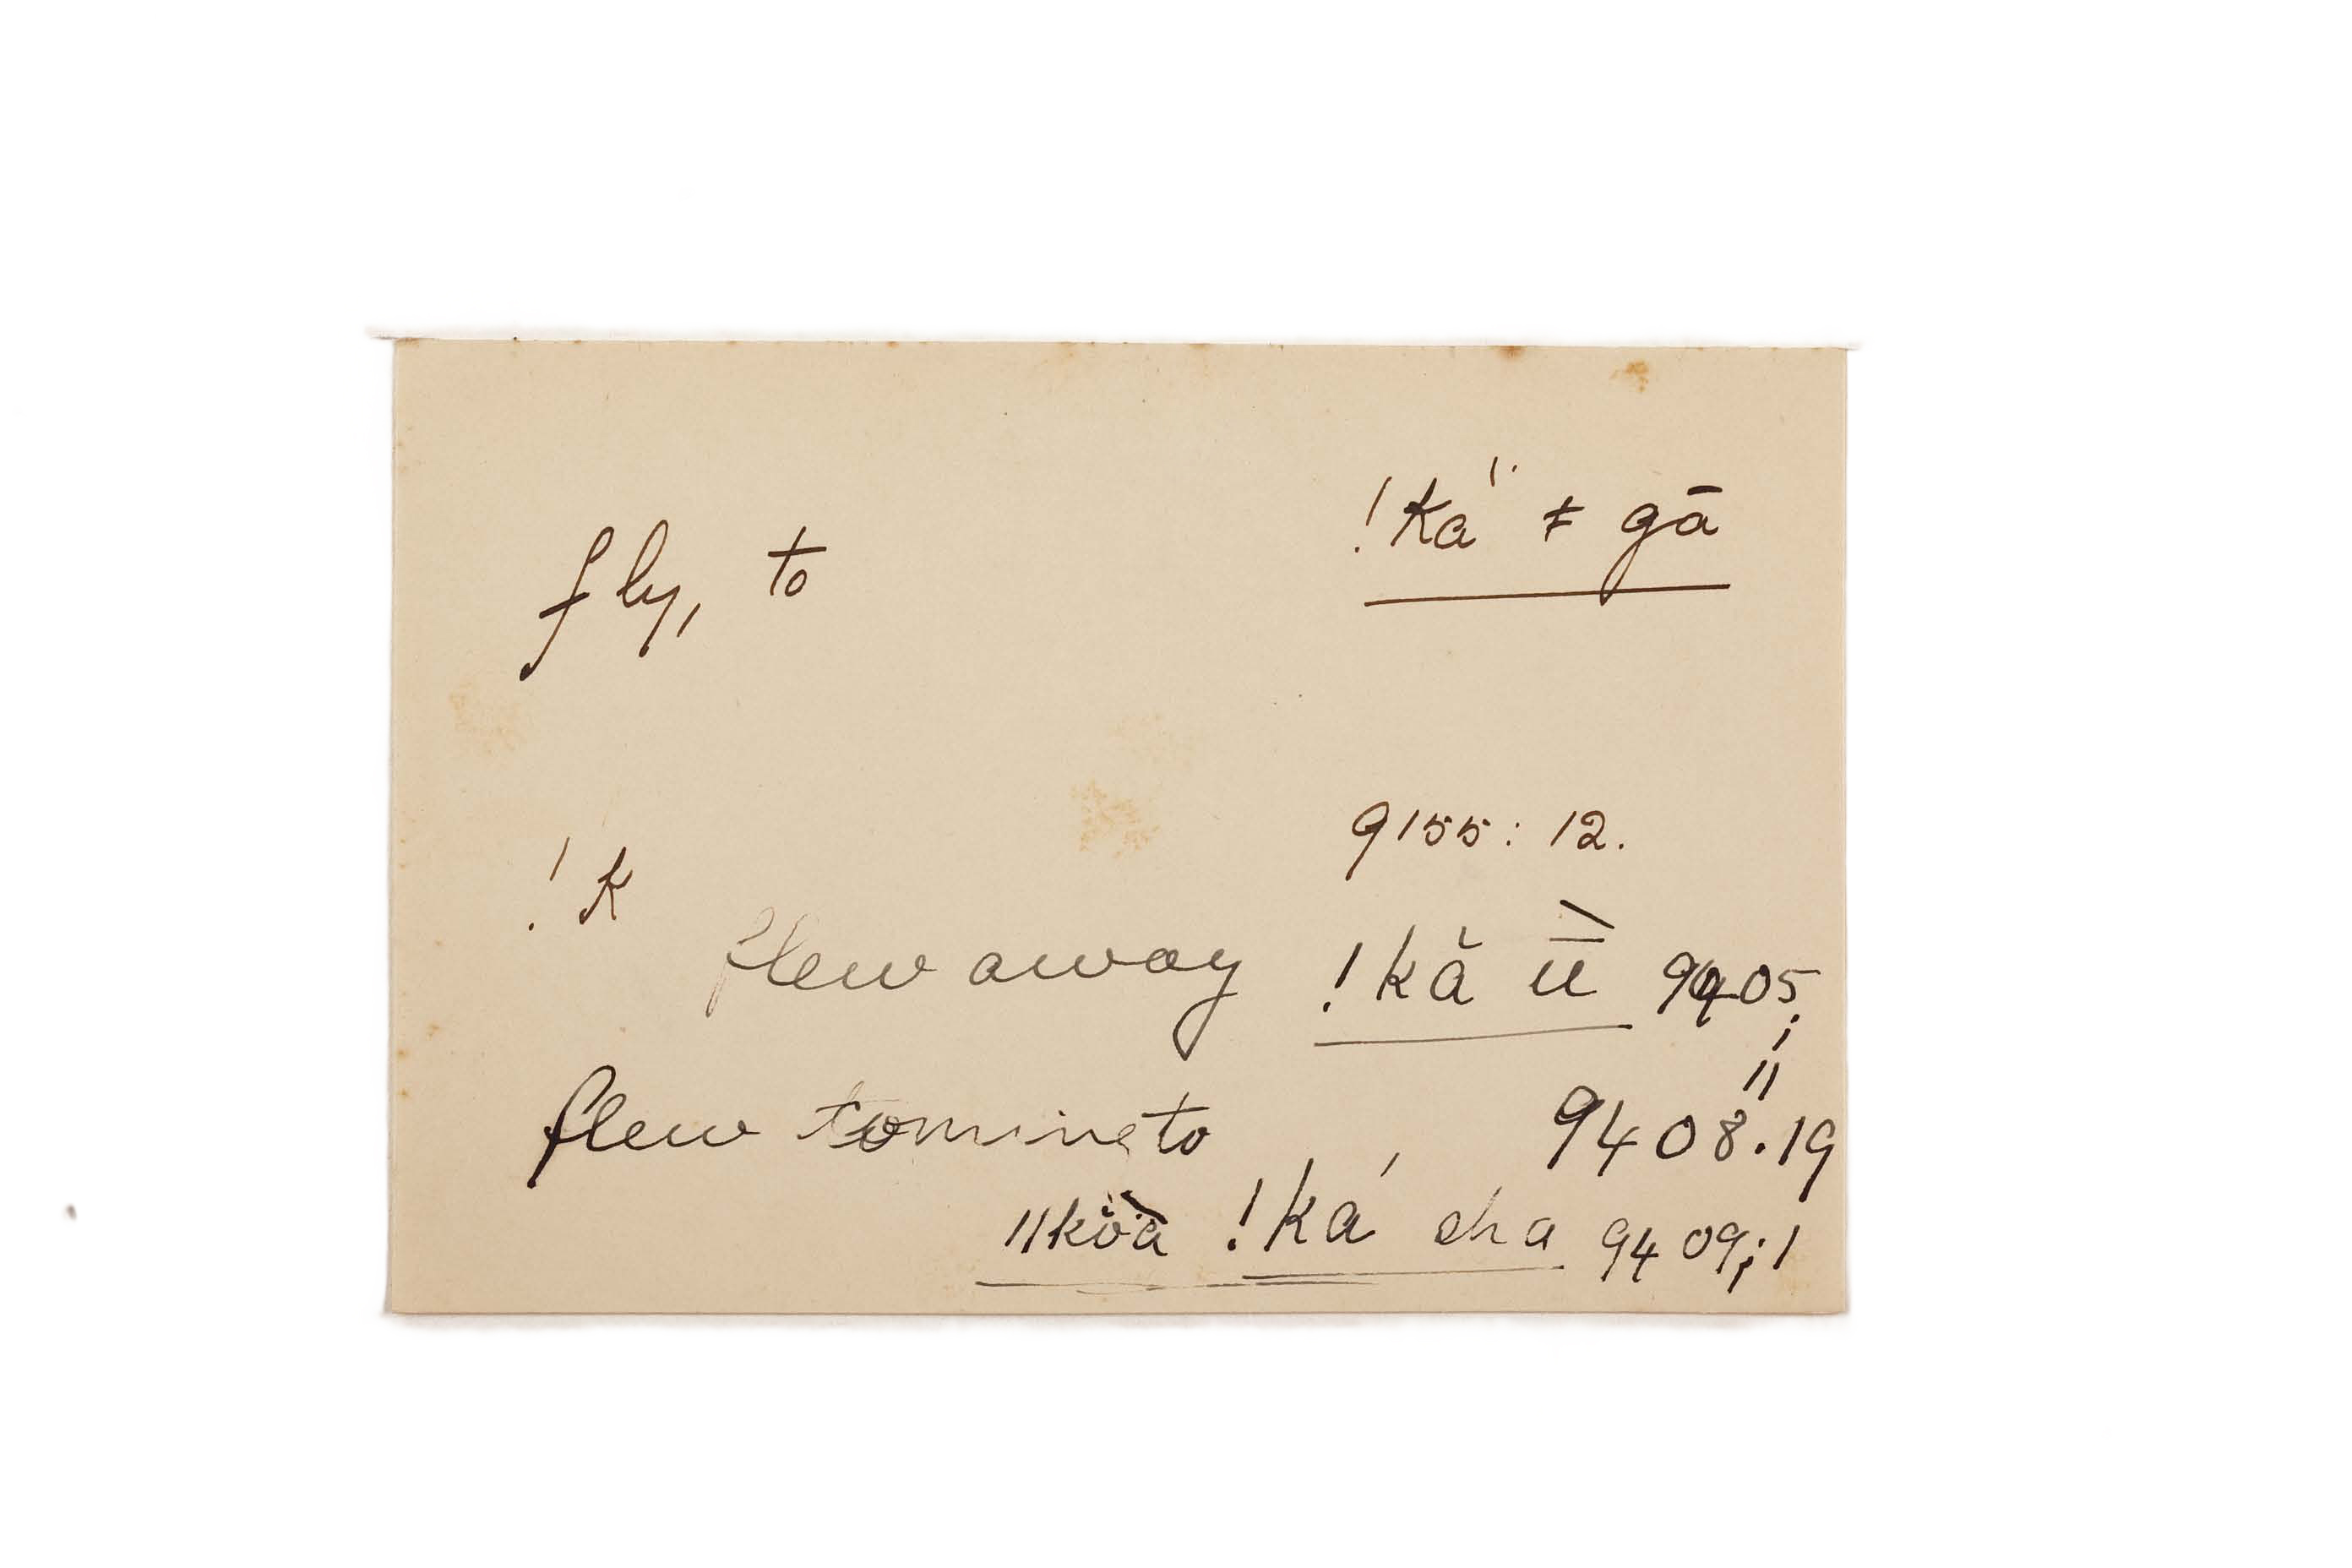 fly, to !ká" ǂ gā
9155: 12.
!k
flew away !kă ū̀ 9405;
11
flew to 9408.19
ǁkŏ̈à !ká ǝha 9409;1